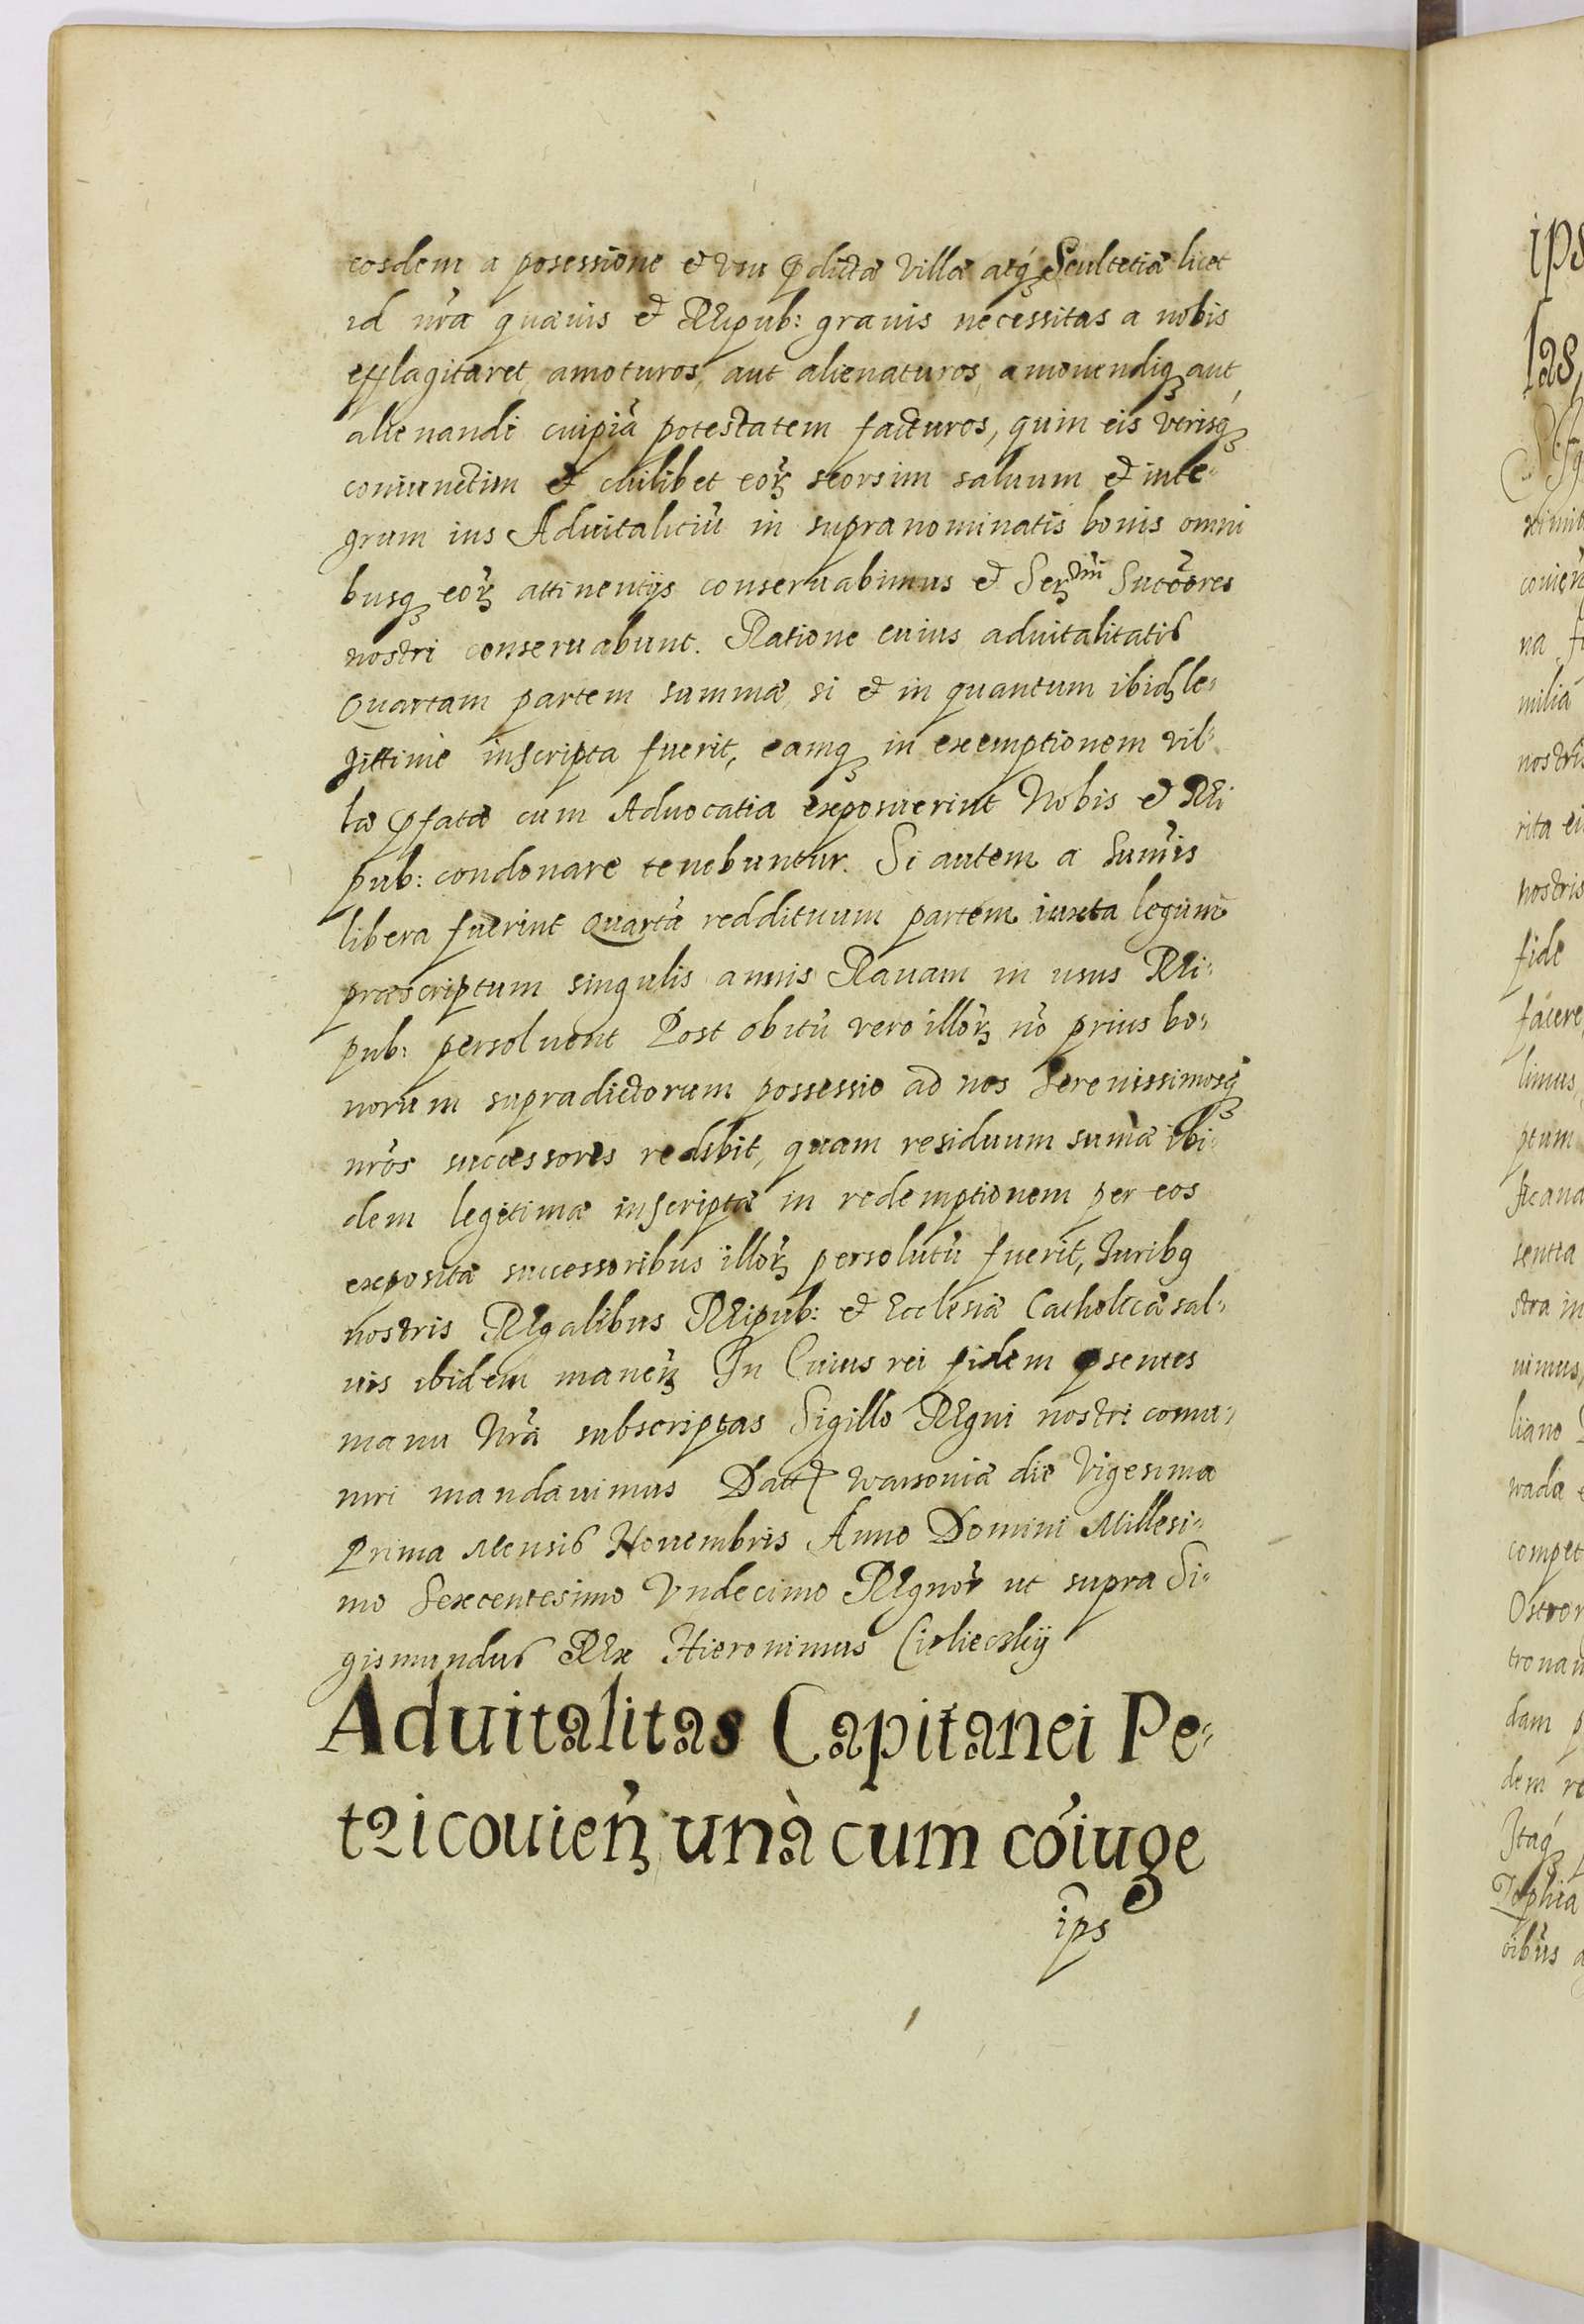 eosdem a posessione et usu p̄dictæ Villæ atq́ꝫ Scultetiæ licet
id nr̃a quævis et Reipub: gravis necessitas a nobis
efflagitaret, amoturos, aut alienaturos, amovendiqꝫ aut
alienandi cuipiã potestatem facturos, quim eis utrisqꝫ
coniunctim et cuilibet eor̃ꝫ seorsim saluum et inte-
grum ius Aduitalitiũ in supranominatis bonis omni
busqꝫ eor̃ꝫ attinentijs conseruabimus et Serꝫmi Succ̃ores
nostri conseruabunt. Ratione cuius aduitalitatis
Quartam partem summæ, si et in quantum ibidꝫ le-
gittime inscripta fuerit, eamqꝫ in exemptionem vil-
læ p̄fatæ cum Aduocatia exposuerint Nobis et Rei
pub: condonare tenebuntur. Si autem a Sum̃is
libera fuerint Quartã reddituum partem iuxta legum
præscriptum singulis annis Rauam in usus Rei-
pub: persoluent Post obitũ vero illor̃ꝫ nõ prius bo-
norum supradictorum possessio ad nos Serenissimosqꝫ
nr̃os successores redibit, quam residuum sum̃æ ibi-
dem legitimæ inscriptæ in redemptionem per eos
expositæ successoribus illor̃ꝫ persolutũ fuerit, Juribq
nostris Regalibus Reipub: et Ecclesiæ Catholicæ sal-
uis ibidem maneñꝫ In Cuius rei fidem p̄sentes
manu Nr̃a subscriptas Sigillo Regni nostri comu-
niri mandauimus Datt Warsouiæ die Vigesima
Prima Mensis Nouembris Anno Domini Millesi-
mo Sexcentesimo Undecimo Regnor̃ ut supra Si-
gismundus Rex Hieronimus Cieliecskij
Aduitalitas Capitanei Pe-
tricouieñꝫ unà cum cõiuge
ips